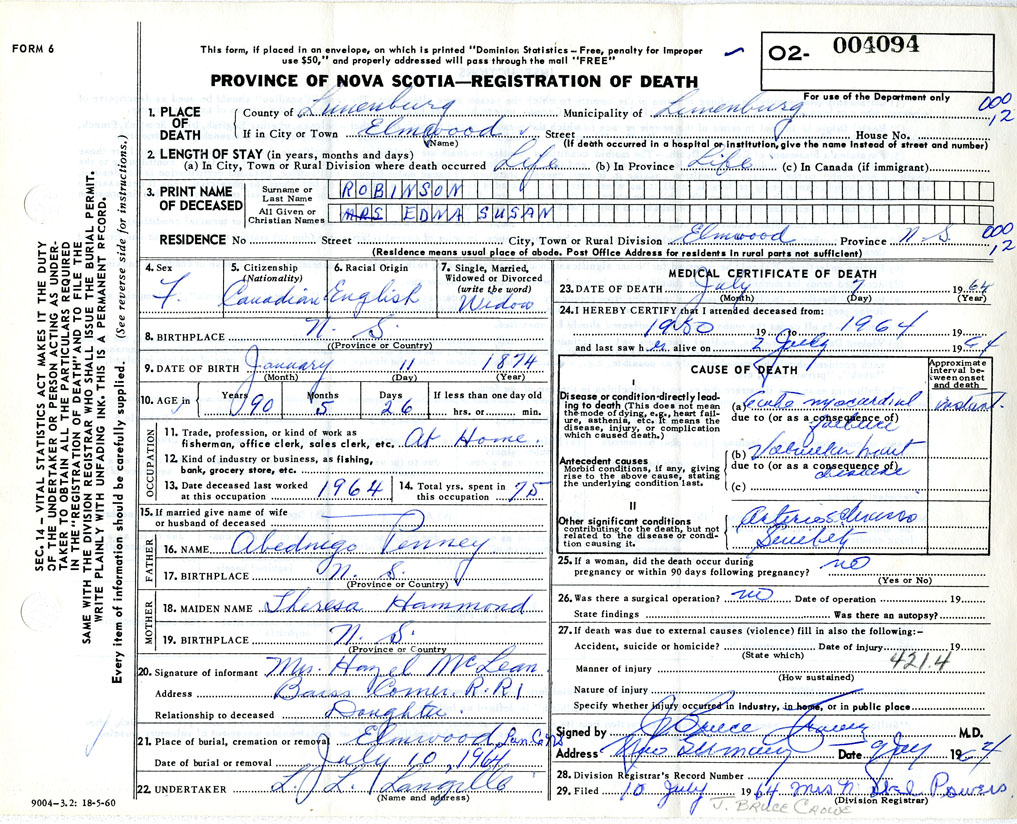 FORM 6
This form, if placed in an envelope, on which is printed "Dominion Statistics – Free, penalty for improper
use $50," and properly addressed will pass through the mail "FREE"
O2- 004094
PROVINCE OF NOVA SCOTIA—REGISTRATION OF DEATH
For use of the Department only
000
12
1. PLACE OF DEATH
County of Lunenburg Municipality of Lunenburg
If in City or Town Elmwood Street House No.
(Name) (If death occurred in a hospital or institution, give the name instead of street and number)
2. LENGTH OF STAY (in years, months and days)
(a) In City, Town or Rural Division where death occurred Life (b) In Province Life (c) In Canada (if immigrant)
3. PRINT NAME OF DECEASED
Surname or Last Name ROBINSON
All Given or Christian Names MRS EDNA SUSAN
RESIDENCE No Street City, Town or Rural Division Elmwood Province N. S.
000
12
(Residence means usual place of abode. Post Office Address for residents in rural parts not sufficient)
4. Sex F.
5. Citizenship (Nationality) Canadian
6. Racial Origin English
7. Single, Married, Widowed or Divorced (write the word) Widow
8. BIRTHPLACE N. S.
(Province or Country)
9. DATE OF BIRTH January 11 1874
(Month) (Day) (Year)
10. AGE in Years 90 Months 5 Days 26 If less than one day old hrs. or min.
OCCUPATION
11. Trade, profession, or kind of work as
fisherman, office clerk, sales clerk, etc. At Home.
12. Kind of industry or business, as fishing,
bank, grocery store, etc.
13. Date deceased last worked at this occupation 1964
14. Total yrs. spent in this occupation 75
15. If married give name of wife
or husband of deceased
FATHER
16. NAME Abednigo Penney
17. BIRTHPLACE N. S.
(Province or Country)
MOTHER
18. MAIDEN NAME Theresa Hammond
19. BIRTHPLACE N. S.
(Province or Country
20. Signature of informant Mrs. Hazel McLean
Address Barss Corner R.R1
Relationship to deceased Daughter.
21. Place of burial, cremation or removal Elmwood
Date of burial or removal July 10, 1964
22. UNDERTAKER L. L. Langille
(Name and address)
9004–3.2: 18-5-60
MEDICAL CERTIFICATE OF DEATH
23. DATE OF DEATH July 7 1964
(Month) (Day) (Year)
24. I HEREBY CERTIFY that I attended deceased from:
1950 19 to 1964 19
and last saw her alive on 2 July 1964
CAUSE OF DEATH
Approximate interval between onset and death
I
Disease or condition directly leading to death (This does not mean the mode of dying, e.g., heart failure, asthenia, etc. It means the disease, injury, or complication which caused death.)
(a) Acute myocardial instant.
due to (or as a consequence of)
failure
Antecedent causes
Morbid conditions, if any, giving rise to the above cause, stating the underlying condition last.
(b) Valvular heart
due to (or as a consequence of)
disease
(c)
II
Other significant conditions
contributing to the death, but not related to the disease or condition causing it.
25. If a woman, did the death occur during
pregnancy or within 90 days following pregnancy? no
(Yes or No)
26. Was there a surgical operation? no Date of operation 19
State findings Was there an autopsy?
27. If death was due to external causes (violence) fill in also the following:–
Accident, suicide or homicide? Date of injury 19
(State which)
421.4
Manner of injury
(How sustained)
Nature of injury
Specify whether injury occurred in industry, in home, or in public place
Signed by J Bruce M.D.
Address Date 9 July 1964
28. Division Registrar's Record Number
29. Filed 10 July 1964 Mrs N. Powers
(Division Registrar)
J. BRUCE CROWE
SEC. 14 – VITAL STATISTICS ACT MAKES IT THE DUTY
OF THE UNDERTAKER OR PERSON ACTING AS UNDER-
TAKER TO OBTAIN ALL THE PARTICULARS REQUIRED
IN THE "REGISTRATION OF DEATH" AND TO FILE THE
SAME WITH THE DIVISION REGISTRAR WHO SHALL ISSUE THE BURIAL PERMIT.
WRITE PLAINLY WITH UNFADING INK. THIS IS A PERMANENT RECORD.
Every item of information should be carefully supplied. (See reverse side for instructions.)